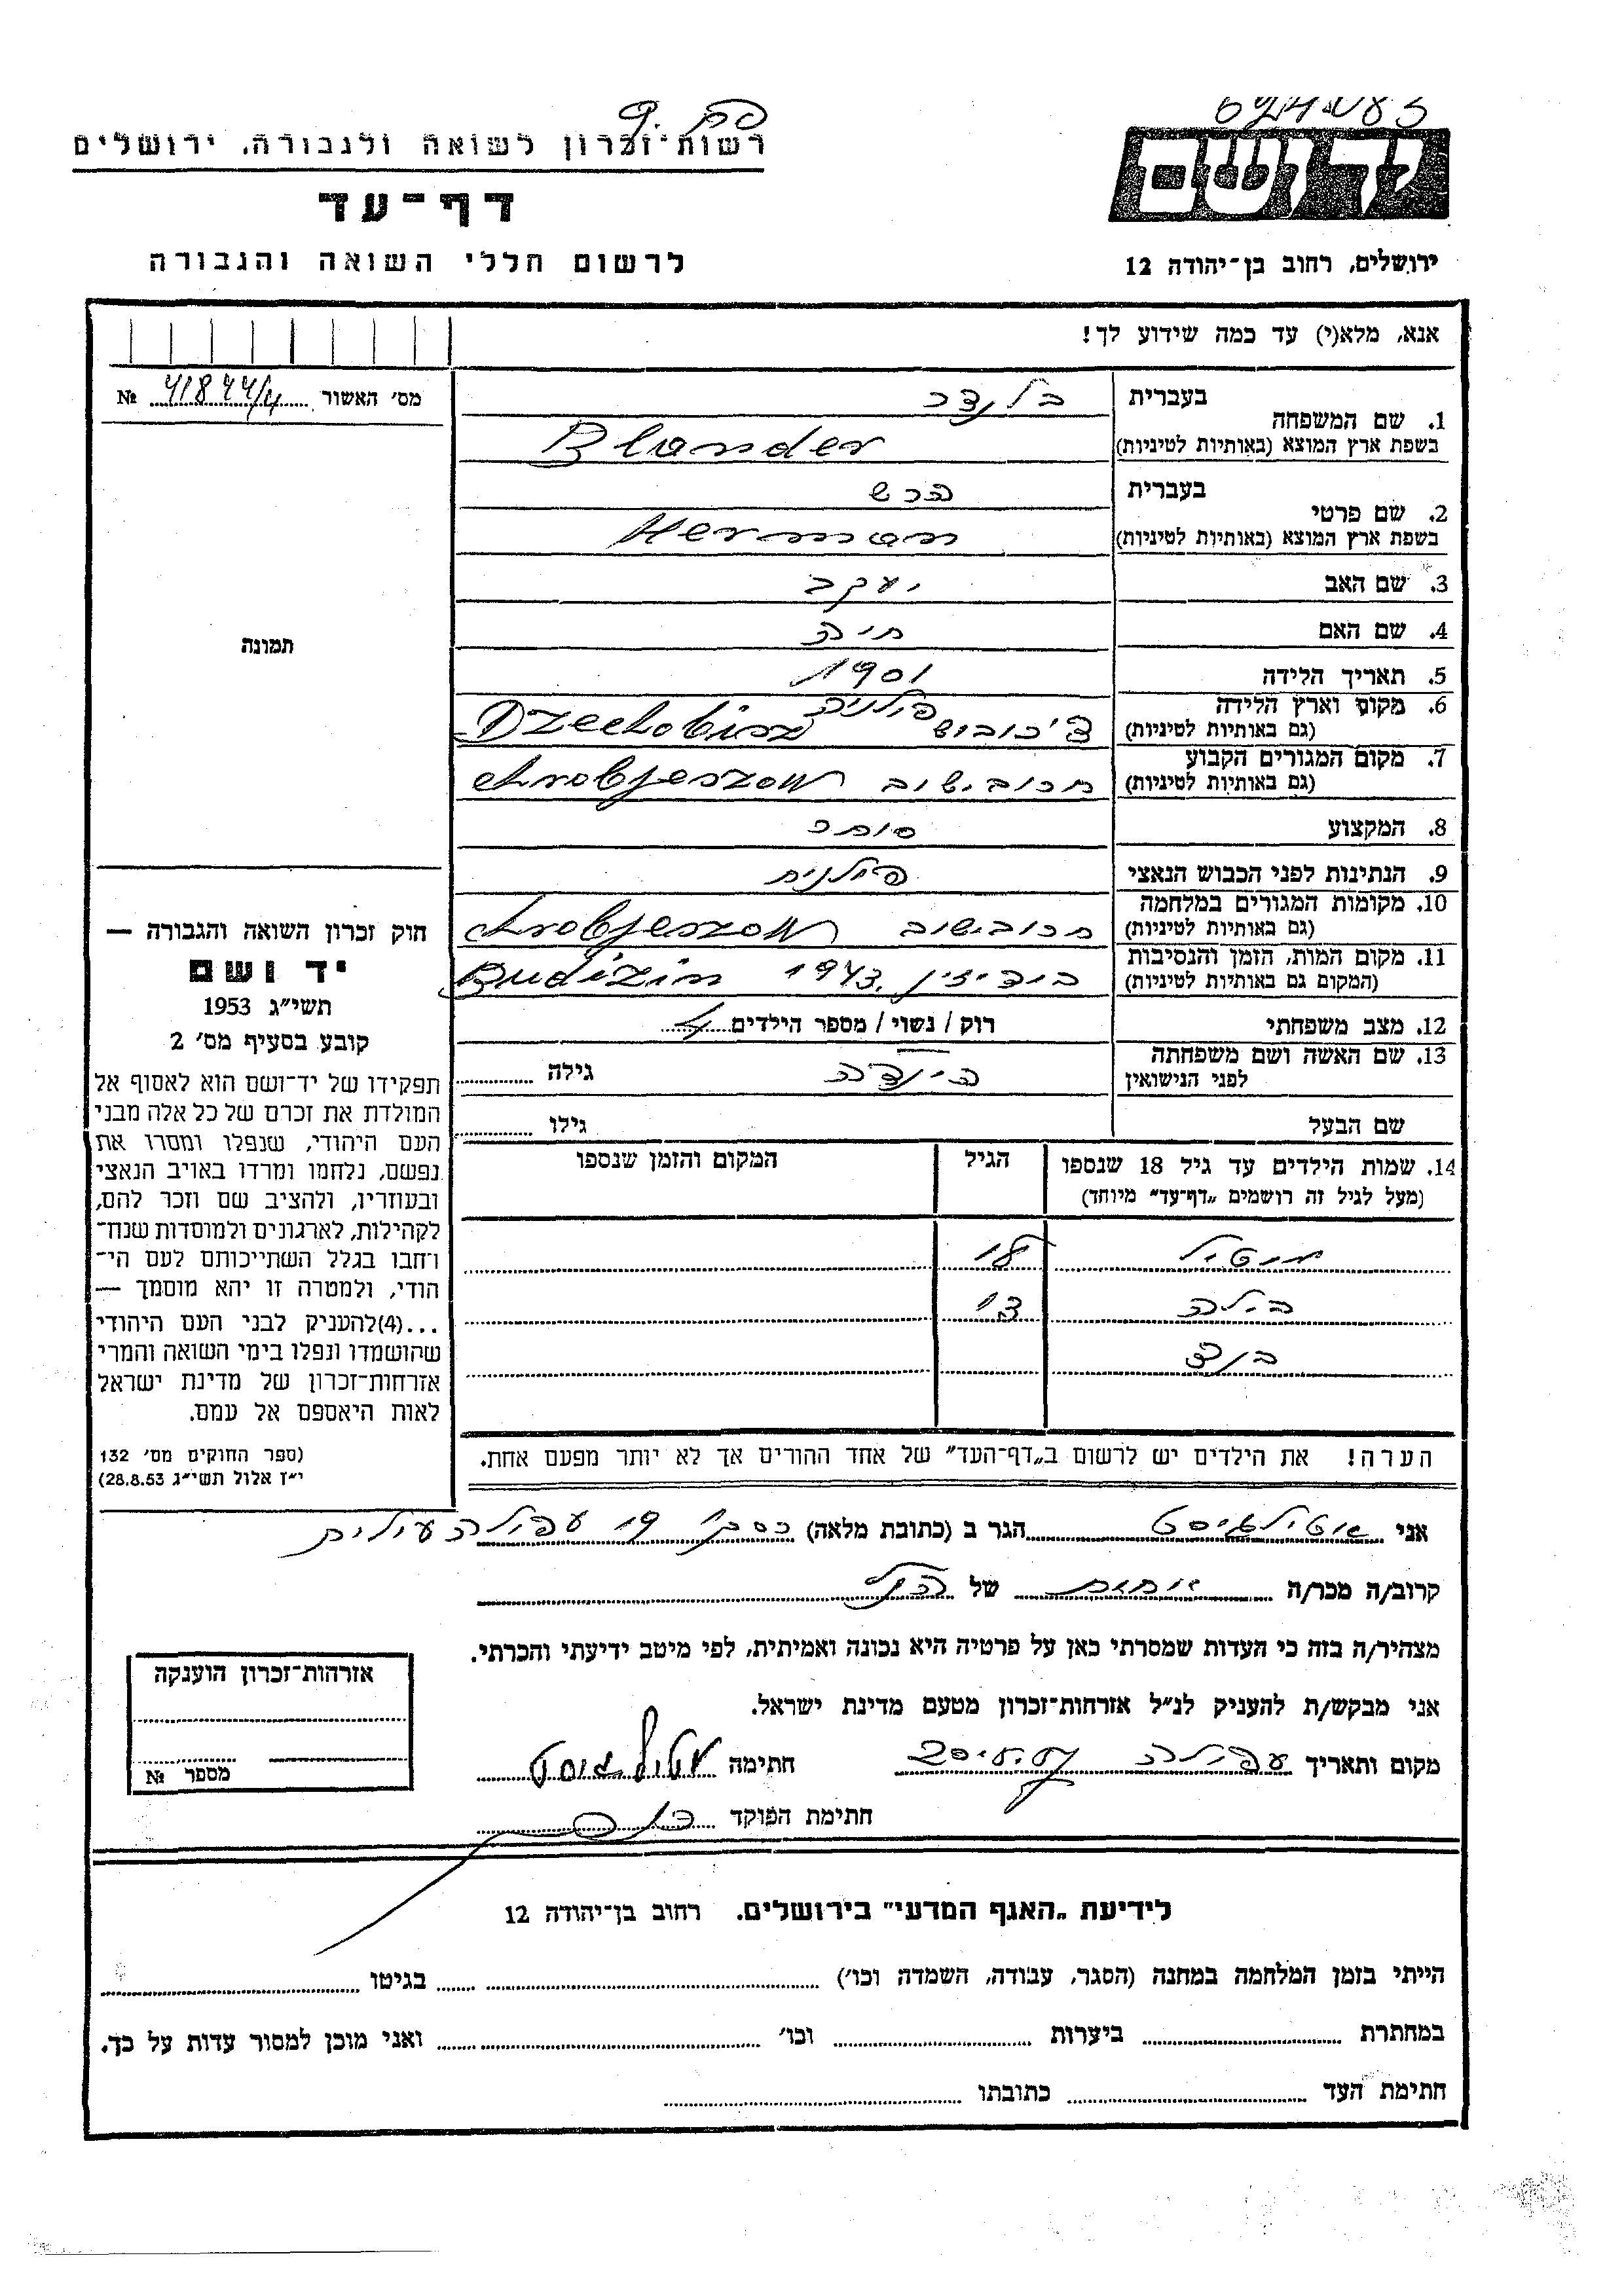 רשות־זכרון לשואה ולגבורה, ירושלים
דף־עד
לרשום חללי השואה והגבורה
ידושם
ירושלים, רחוב בן־יהודה 12
אנא, מלא(י) עד כמה שידוע לך!
מס' האשור 41844/4 №
תמונה
1. שם המשפחה
בעברית בלנדר
בשפת ארץ המוצא (באותיות לטיניות) Blander
2. שם פרטי
בעברית הרש
בשפת ארץ המוצא (באותיות לטיניות) Herman
3. שם האב יעקב
4. שם האם חיה
5. תאריך הלידה 1901
6. מקום וארץ הלידה פולניה
(גם באותיות לטיניות)
7. מקום המגורים הקבוע
(גם באותיות לטיניות) חרובישוב chrobjeszow
8. המקצוע סוחר
9. הנתינות לפני הכבוש הנאצי פולנית
10. מקומות המגורים במלחמה
(גם באותיות לטיניות) חרובישוב chrobjeszow
11. מקום המות, הזמן והנסיבות
(המקום גם באותיות לטיניות) בודיזין 1943. Budizin
12. מצב משפחתי רוק / נשוי / מספר הילדים 4
13. שם האשה ושם משפחתה
לפני הנישואין הינדה גילה
שם הבעל גילו
14. שמות הילדים עד גיל 18 שנספו הגיל המקום והזמן שנספו
(מעל לגיל זה רושמים „דף־עד" מיוחד)
בילה 13
הערה! את הילדים יש לרשום ב„דף־העד" של אחד ההורים אך לא יותר מפעם אחת.
חוק זכרון השואה והגבורה —
יד ושם
תשי"ג 1953
קובע בסעיף מס' 2
תפקידו של יד־ושם הוא לאסוף אל
המולדת את זכרם של כל אלה מבני
העם היהודי, שנפלו ומסרו את
נפשם, נלחמו ומרדו באויב הנאצי
ובעוזריו, ולהציב שם וזכר להם,
לקהילות, לארגונים ולמוסדות שנח־
רחבו בגלל השתייכותם לעם הי־
הודי, ולמטרה זו יהא מוסמך —
...(4)להעניק לבני העם היהודי
שהושמדו ונפלו בימי השואה והמרי
אזרחות־זכרון של מדינת ישראל
לאות היאספם אל עמם.
(ספר החוקים מס' 132
י"ז אלול תשי"ג 28.8.53)
אני הגר ב (כתובת מלאה) 19 עפולה עילית
קרוב/ה מכר/ה אחות של הנ"ל
מצהיר/ה בזה כי העדות שמסרתי כאן על פרטיה היא נכונה ואמיתית, לפי מיטב ידיעתי והכרתי.
אני מבקש/ת להעניק לנ"ל אזרחות־זכרון מטעם מדינת ישראל.
מקום ותאריך עפולה חתימה
חתימת הפוקד
אזרהות־זכרון הוענקה
מספר №
לידיעת „האגף המדעי" בירושלים. רחוב בן־יהודה 12
הייתי בזמן המלחמה במחנה (הסגר, עבודה, השמדה וכו') בגיטו
במחתרת ביערות וכו' ואני מוכן למסור עדות על כך.
חתימת העד כתובתו